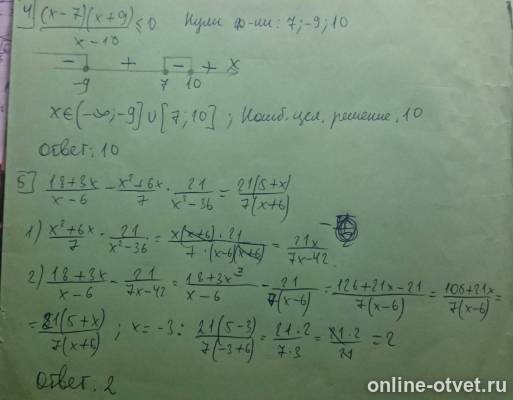 4] (x-7)(x+9) / x-10 ≤ 0 Нули ф-ии: 7; -9; 10
- + - + x
-9 7 10
x∈(-∞; -9]∪[7; 10] ; Наиб. цел. решение. 10
Ответ: 10
5] 18+3x / x-6 - x²+6x / 7 · 21 / x²-36 = 21(5+x) / 7(x+6)
1) x²+6x / 7 · 21 / x²-36 = x(x+6)·21 / 7·(x-6)(x+6) = 21x / 7x-42
2) 18+3x / x-6 - 21 / 7x-42 = 18+3x⁷ / x-6 - 21 / 7(x-6) = 126+21x-21 / 7(x-6) = 106+21x / 7(x-6) =
= 21(5+x) / 7(x+6) ; x=-3: 21(5-3) / 7(-3+6) = 21·2 / 7·3 = 21·2 / 21 = 2
Ответ: 2
online-otvet.ru